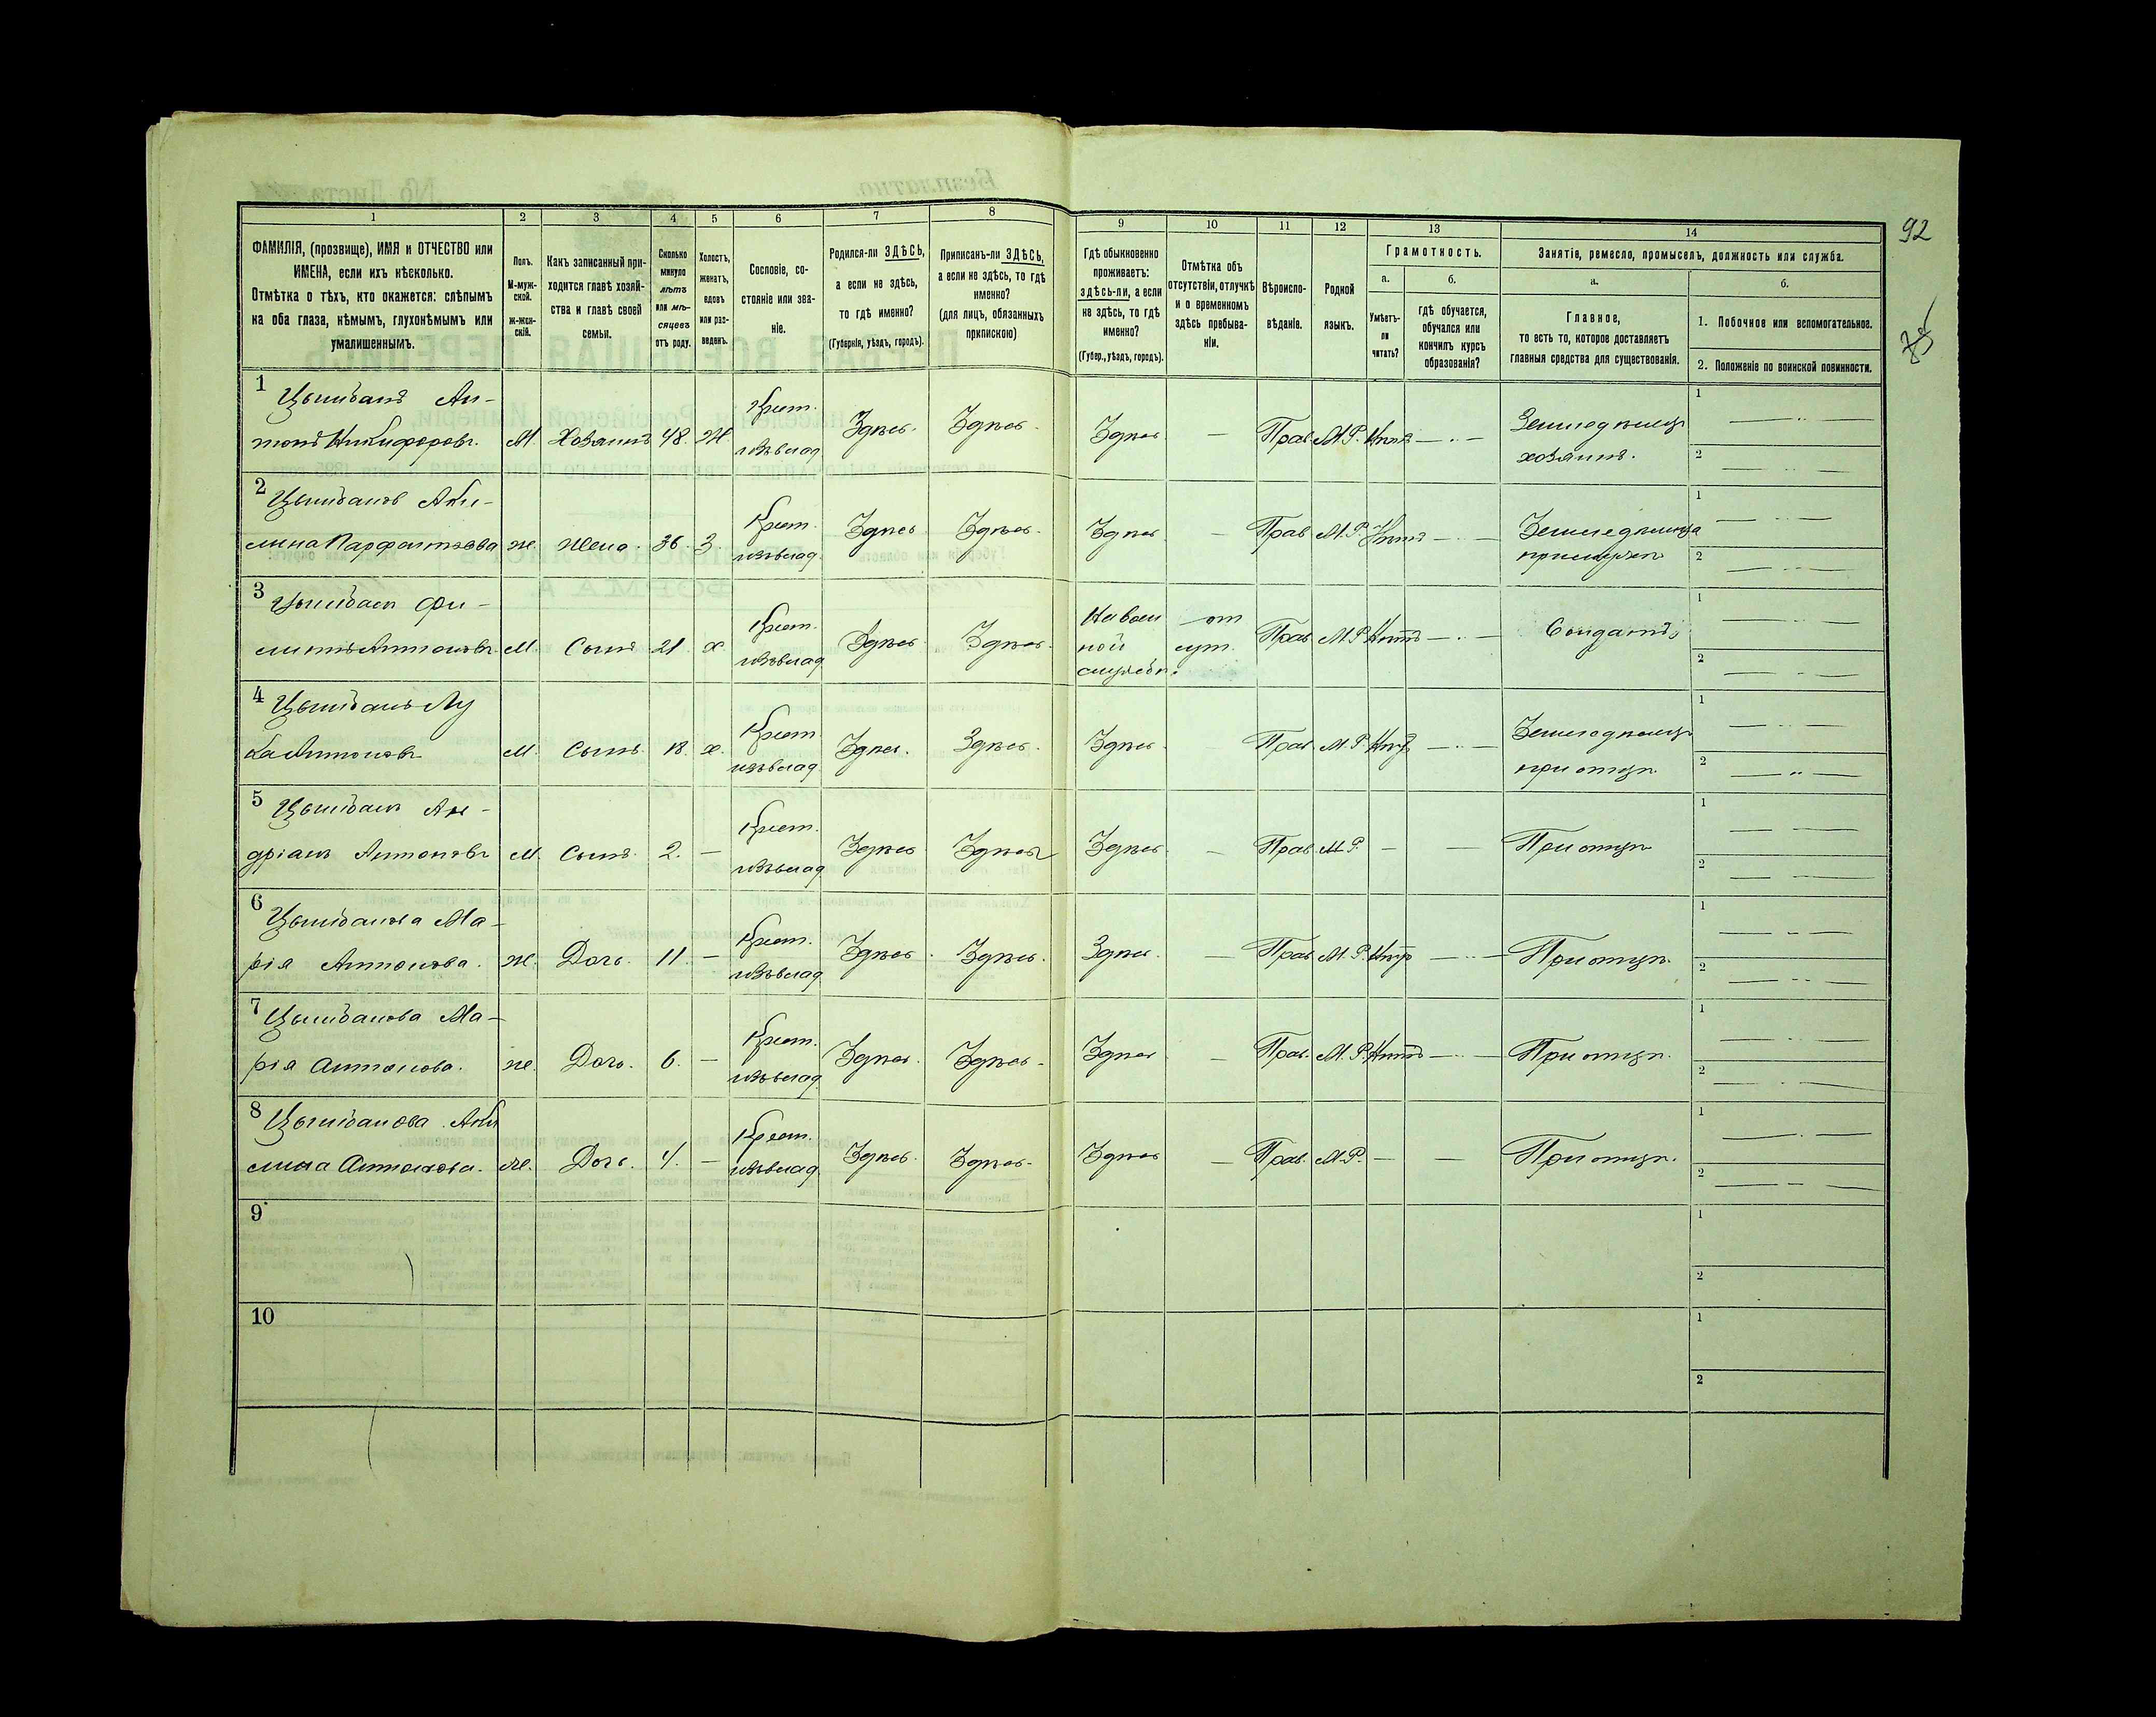 92
75
1 2 3 4 5 6 7 8 9 10 11 12 13 14
ФАМИЛІЯ, (прозвище), ИМЯ и ОТЧЕСТВО или
ИМЕНА, если ихъ нѣсколько.
Отмѣтка о тѣхъ, кто окажется: слѣпымъ
на оба глаза, нѣмымъ, глухонѣмымъ или
умалишеннымъ.
Полъ.
М-муж-
ской.
ж-жен-
скій.
Какъ записанный при-
ходится главѣ хозяй-
ства и главѣ своей
семьи.
Сколько
минуло
лѣтъ
или мѣ-
сяцевъ
отъ роду.
Холостъ,
женатъ,
вдовъ
или раз-
веденъ.
Сословіе, со-
стояніе или зва-
ніе.
Родился-ли ЗДѢСЬ,
а если не здѣсь,
то гдѣ именно?
(Губернія, уѣздъ, городъ).
Приписанъ-ли ЗДѢСЬ,
а если не здѣсь, то гдѣ
именно?
(для лицъ, обязанныхъ
припискою)
Гдѣ обыкновенно
проживаетъ:
здѣсь-ли, а если
не здѣсь, то гдѣ
именно?
(Губер., уѣздъ, городъ).
Отмѣтка объ
отсутствіи, отлучкѣ
и о временномъ
здѣсь пребыва-
ніи.
Вѣроиспо-
вѣданіе.
Родной
языкъ.
Грамотность.
а.
Умѣетъ-
ли
читать?
б.
гдѣ обучается,
обучался или
кончилъ курсъ
образованія?
Занятіе, ремесло, промыселъ, должность или служба.
а.
Главное,
то есть то, которое доставляетъ
главныя средства для существованія.
б.
1. Побочное или вспомогательное.
2. Положеніе по воинской повинности.
1 Цымбалъ Ан-
тонъ Никифоровъ. М. Хозяинъ 48. Ж. Крест. изъ влад. Здѣсь. Здѣсь. Здѣсь. — Прав. М.Р. Нѣтъ — Земледѣлецъ
хозяинъ.
1
2
2 Аку-
лина ж. Жена. 36. З Крест. изъ влад. Здѣсь. Здѣсь. Здѣсь — Прав. М.Р. Нѣтъ —
1
2
3 Фи-
М. Сынъ 21. х Крест. изъ влад. Здѣсь. Здѣсь. На воен
ной
службѣ. от
сут. Прав. М.Р. Нѣтъ — Солдатъ.
1
2
4 Лу
ка Антоновъ М. Сынъ. 18. х. Крест. изъ влад. Здѣсь. Здѣсь. Здѣсь. Прав. М.Р. Нѣтъ — Земледѣлецъ
при отцѣ.
1
2
5 Ан-
дріанъ Антоновъ М. Сынъ. 2. — Крест. изъ влад. Здѣсь Здѣсь Здѣсь. — Прав. М.Р. — — При отцѣ
1
2
6 Ма-
рія Антонова. ж. Дочь. 11. — Крест. изъ влад. Здѣсь. Здѣсь. Здѣсь. — Прав. М.Р. Нѣтъ — При отцѣ.
1
2
7 Ма-
рія Антонова. ж. Дочь. 6. — Крест. изъ влад. Здѣсь. Здѣсь. Здѣсь — Прав. М.Р. Нѣтъ — При отцѣ.
1
2
8 Аку
лина Антонова. ж. Дочь. 4. — Крест. изъ влад. Здѣсь. Здѣсь. Здѣсь — Прав. М.Р. — — При отцѣ.
1
2
9
1
2
10
1
2